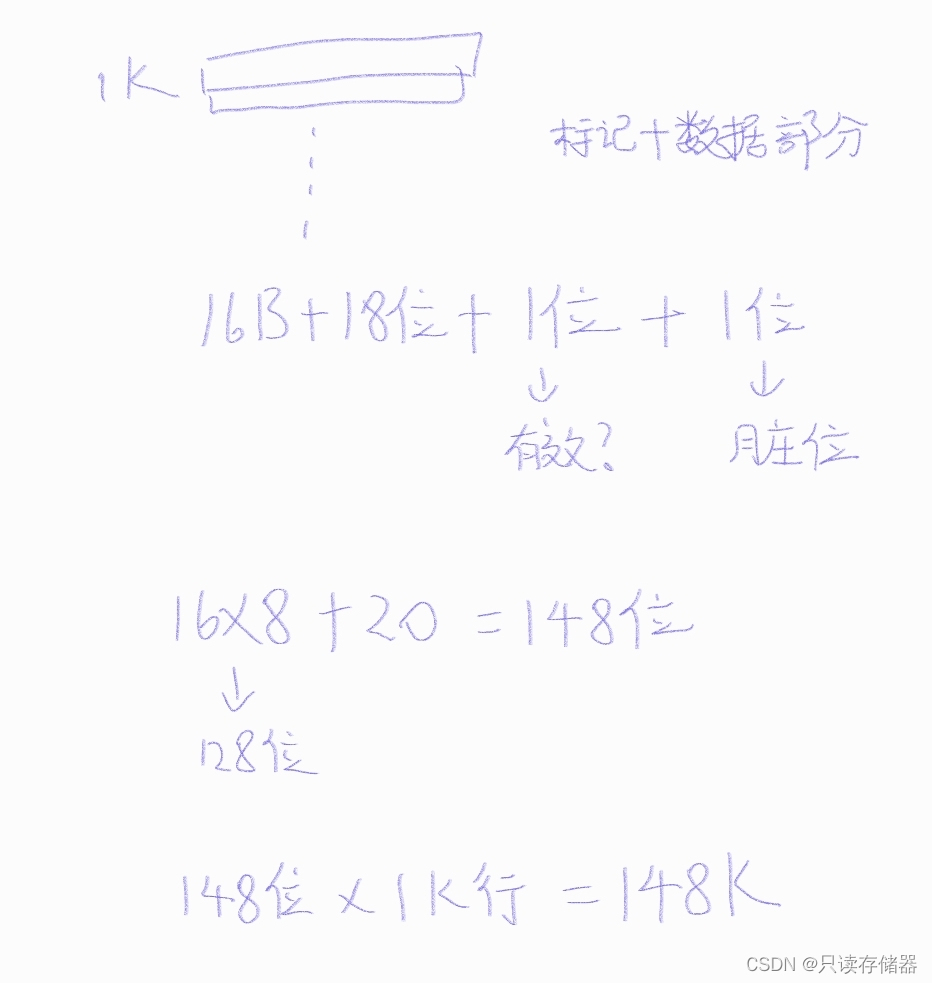 1K
标记+数据部分
16B+18位+1位+1位
↓ ↓
有效? 脏位
16×8+20=148位
↓
128位
148位×1K行=148K
CSDN @只读存储器